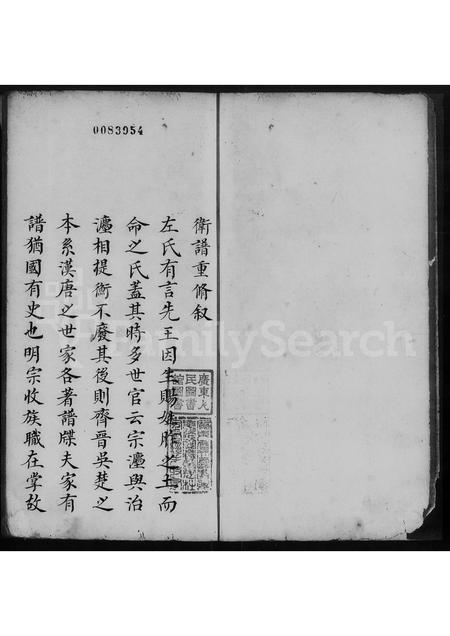 0083954
衛譜重脩叙
左氏有言先王因生賜姓胙之土而
命之氏蓋其時多世官云宗灋與治
灋相提衡不廢其後則齊晉吳楚之
本系漢唐之世家各著譜牒夫家有
譜猶國有史也明宗收族職在掌故
FamilySearch